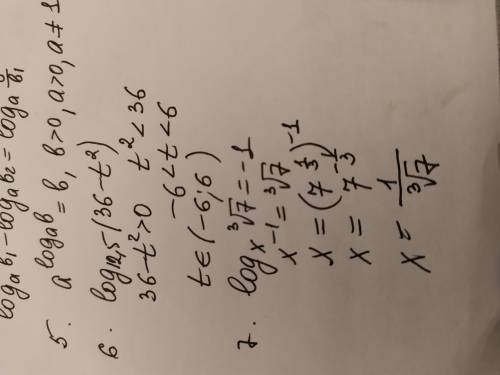 logₐ b₁ - logₐ b₂ = logₐ b₁
5. a^(logₐ b) = b, b>0, a>0, a≠1
6. log₁₂,₅ (36 - t²)
36 - t² > 0 t² < 36
-6 < t < 6
t ∈ (-6; 6)
7. logₓ ∛7 = -1
x⁻¹ = ∛7
x = (7^(1/3))⁻¹
x = 7^(-1/3)
x = 1/∛7